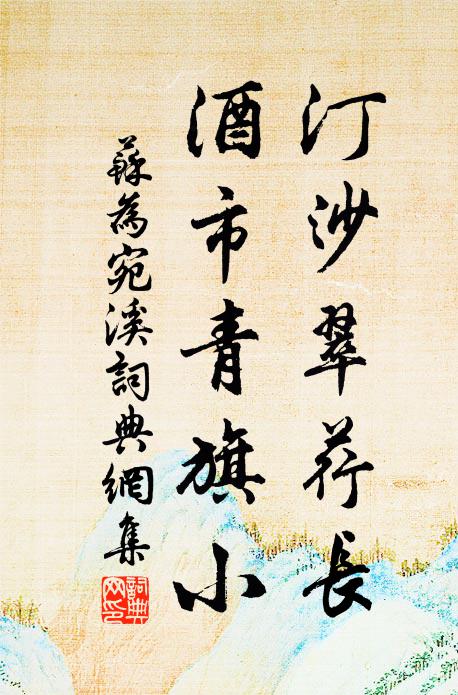 汀沙翠荇長
酒市青旗小
蘇為宛溪詞典網集
詞典